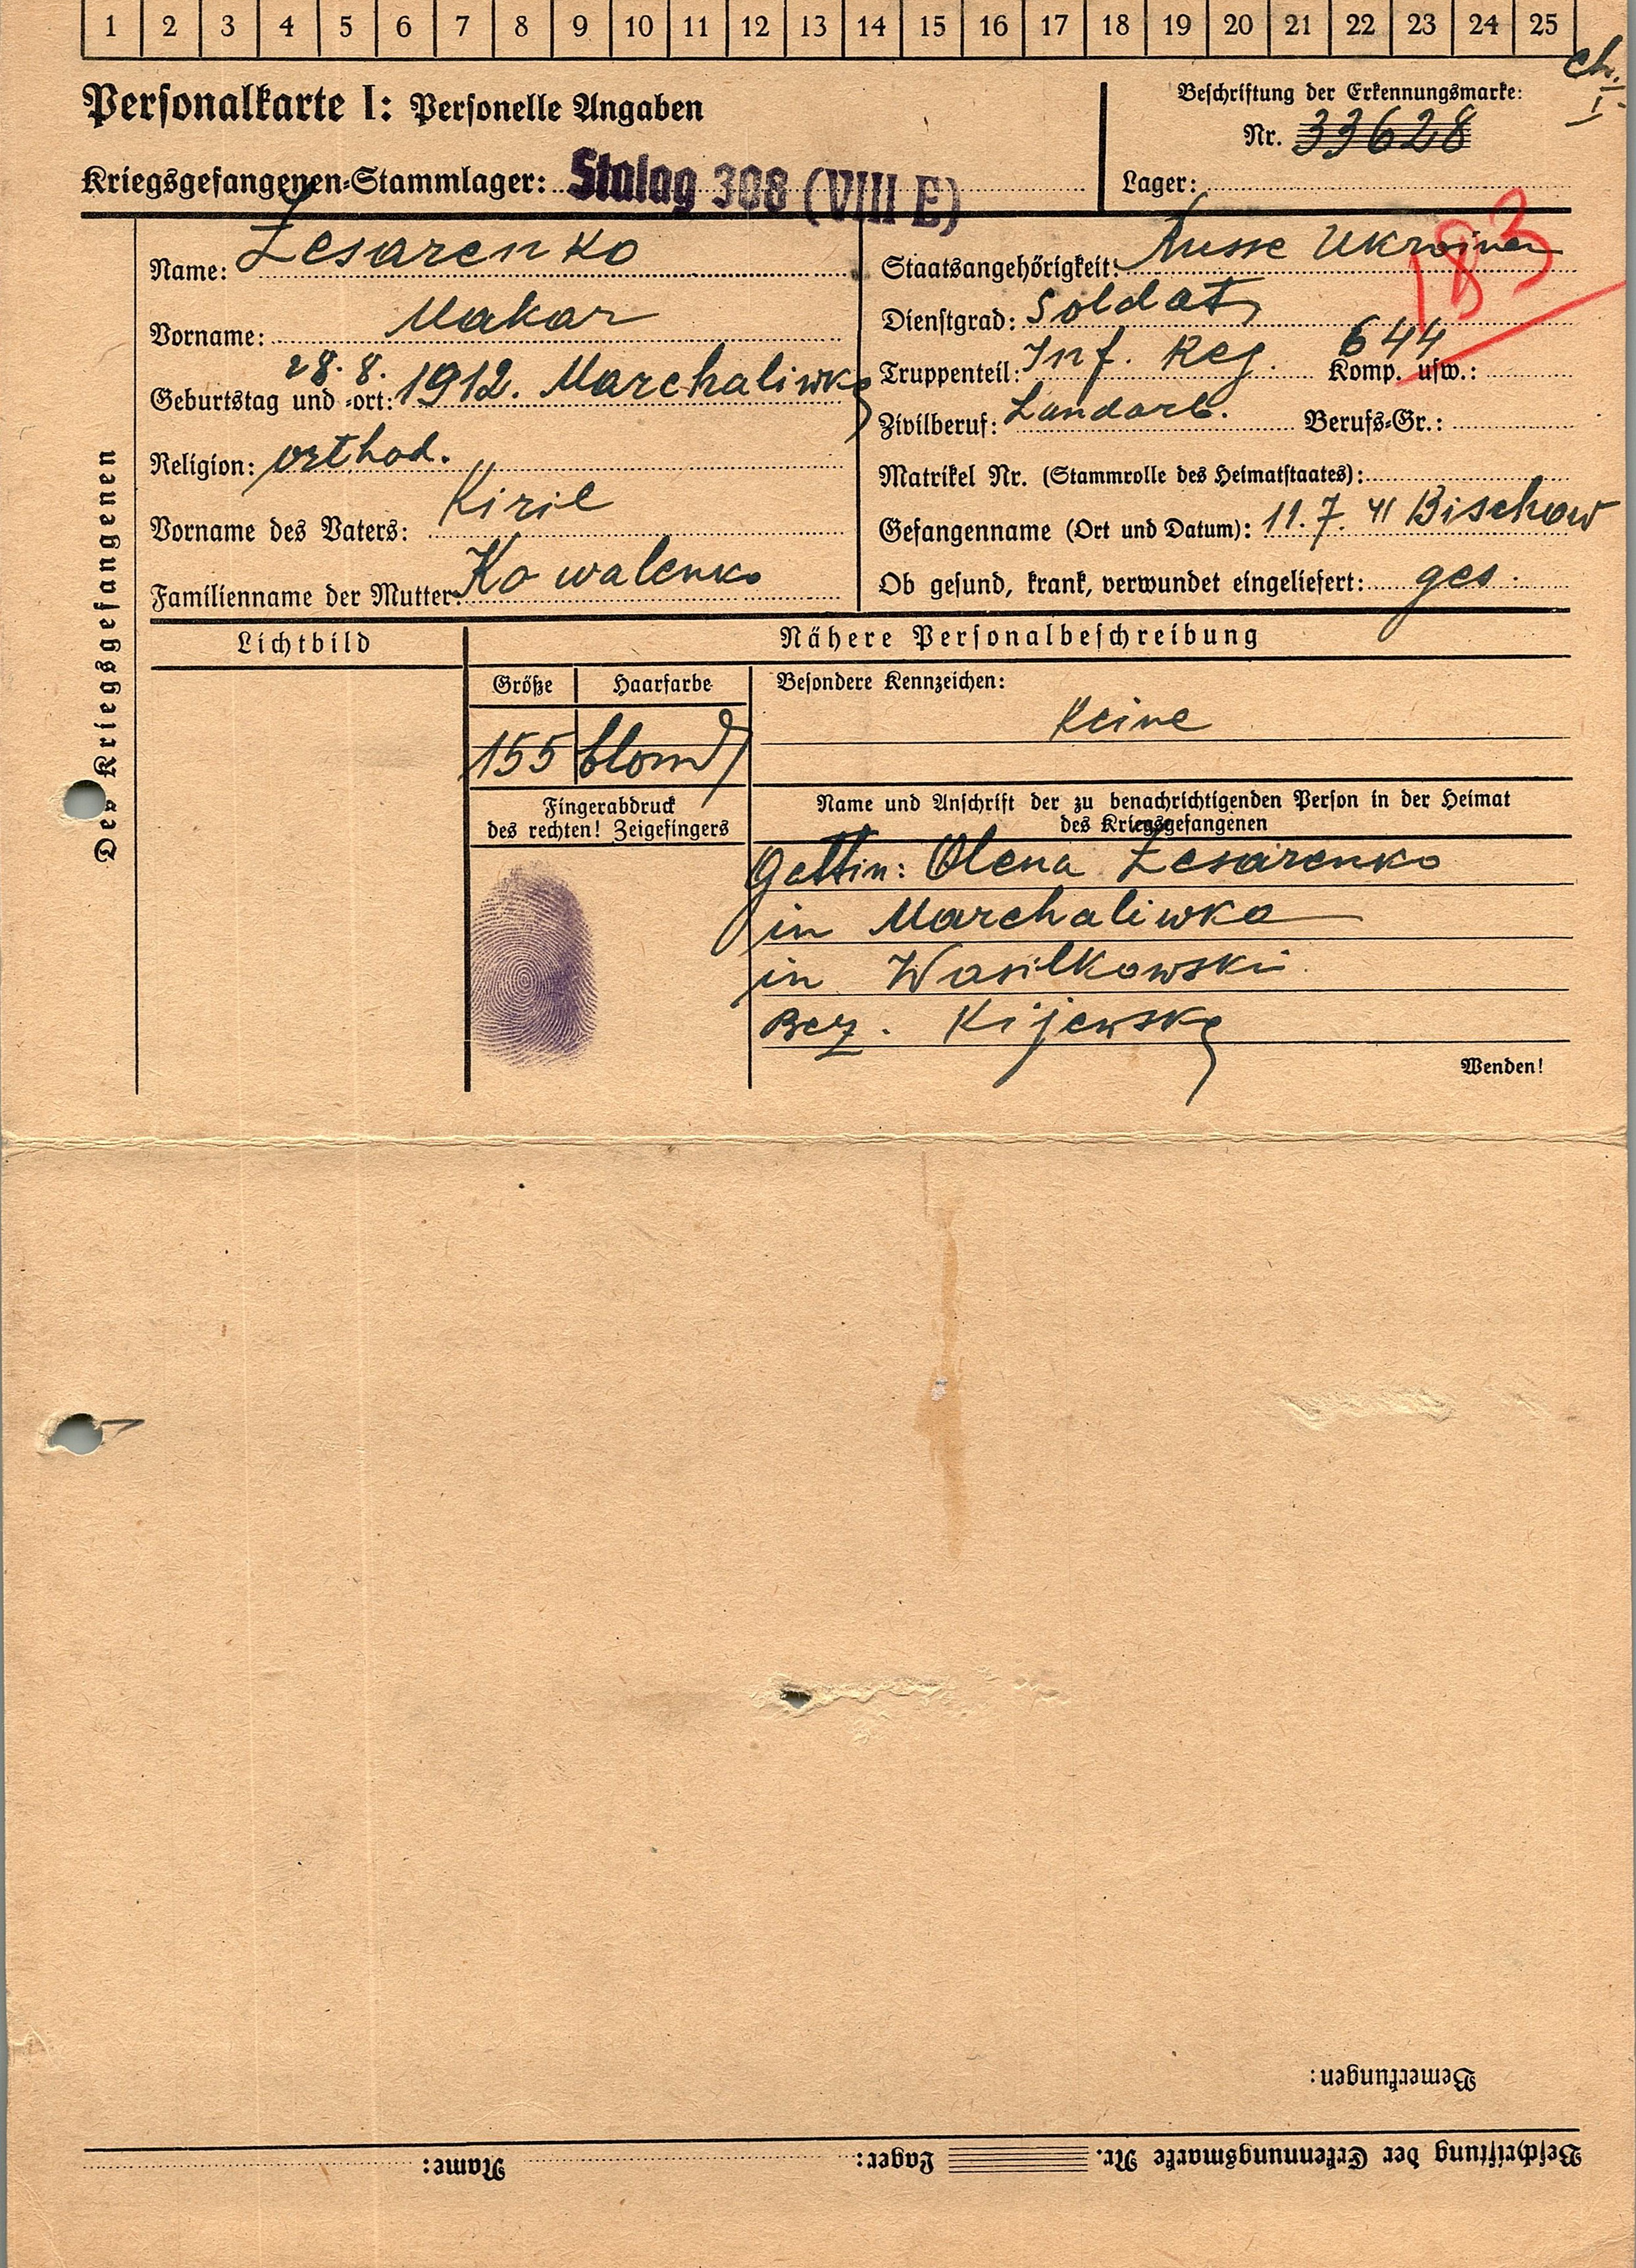 1 2 3 4 5 6 7 8 9 10 11 12 13 14 15 16 17 18 19 20 21 22 23 24 25
Personalkarte I: Personelle Angaben
Beschriftung der Erkennungsmarke:
Nr. 33628
Kriegsgefangenen-Stammlager: Stalag 308 (VIII E)
Lager:
183
Des Kriegsgefangenen
Name: Zesarenko
Vorname: Makar
Geburtstag und -ort: 28. 8. 1912. Marchaliwka
Religion: orthod.
Vorname des Vaters: Kiril
Familienname der Mutter: Kowalenko
Staatsangehörigkeit: Russe Ukrainer
Dienstgrad: Soldat
Truppenteil: Inf. Reg. 644 Komp. usw.:
Zivilberuf: Landarb. Berufs-Gr.:
Matrikel Nr. (Stammrolle des Heimatstaates):
Gefangennahme (Ort und Datum): 11. 7. 41 Bischow
Ob gesund, krank, verwundet eingeliefert: ges.
Lichtbild
Nähere Personalbeschreibung
Größe Haarfarbe
155 blond
Besondere Kennzeichen:
Keine
Fingerabdruck
des rechten! Zeigefingers
Name und Anschrift der zu benachrichtigenden Person in der Heimat
des Kriegsgefangenen
Gattin: Olena Zesarenko
in Marchaliwka
in Wasilkowski
Bez. Kijewska
Wenden!
Bemerkungen:
Beschriftung der Erkennungsmarke Nr. Lager: Name: